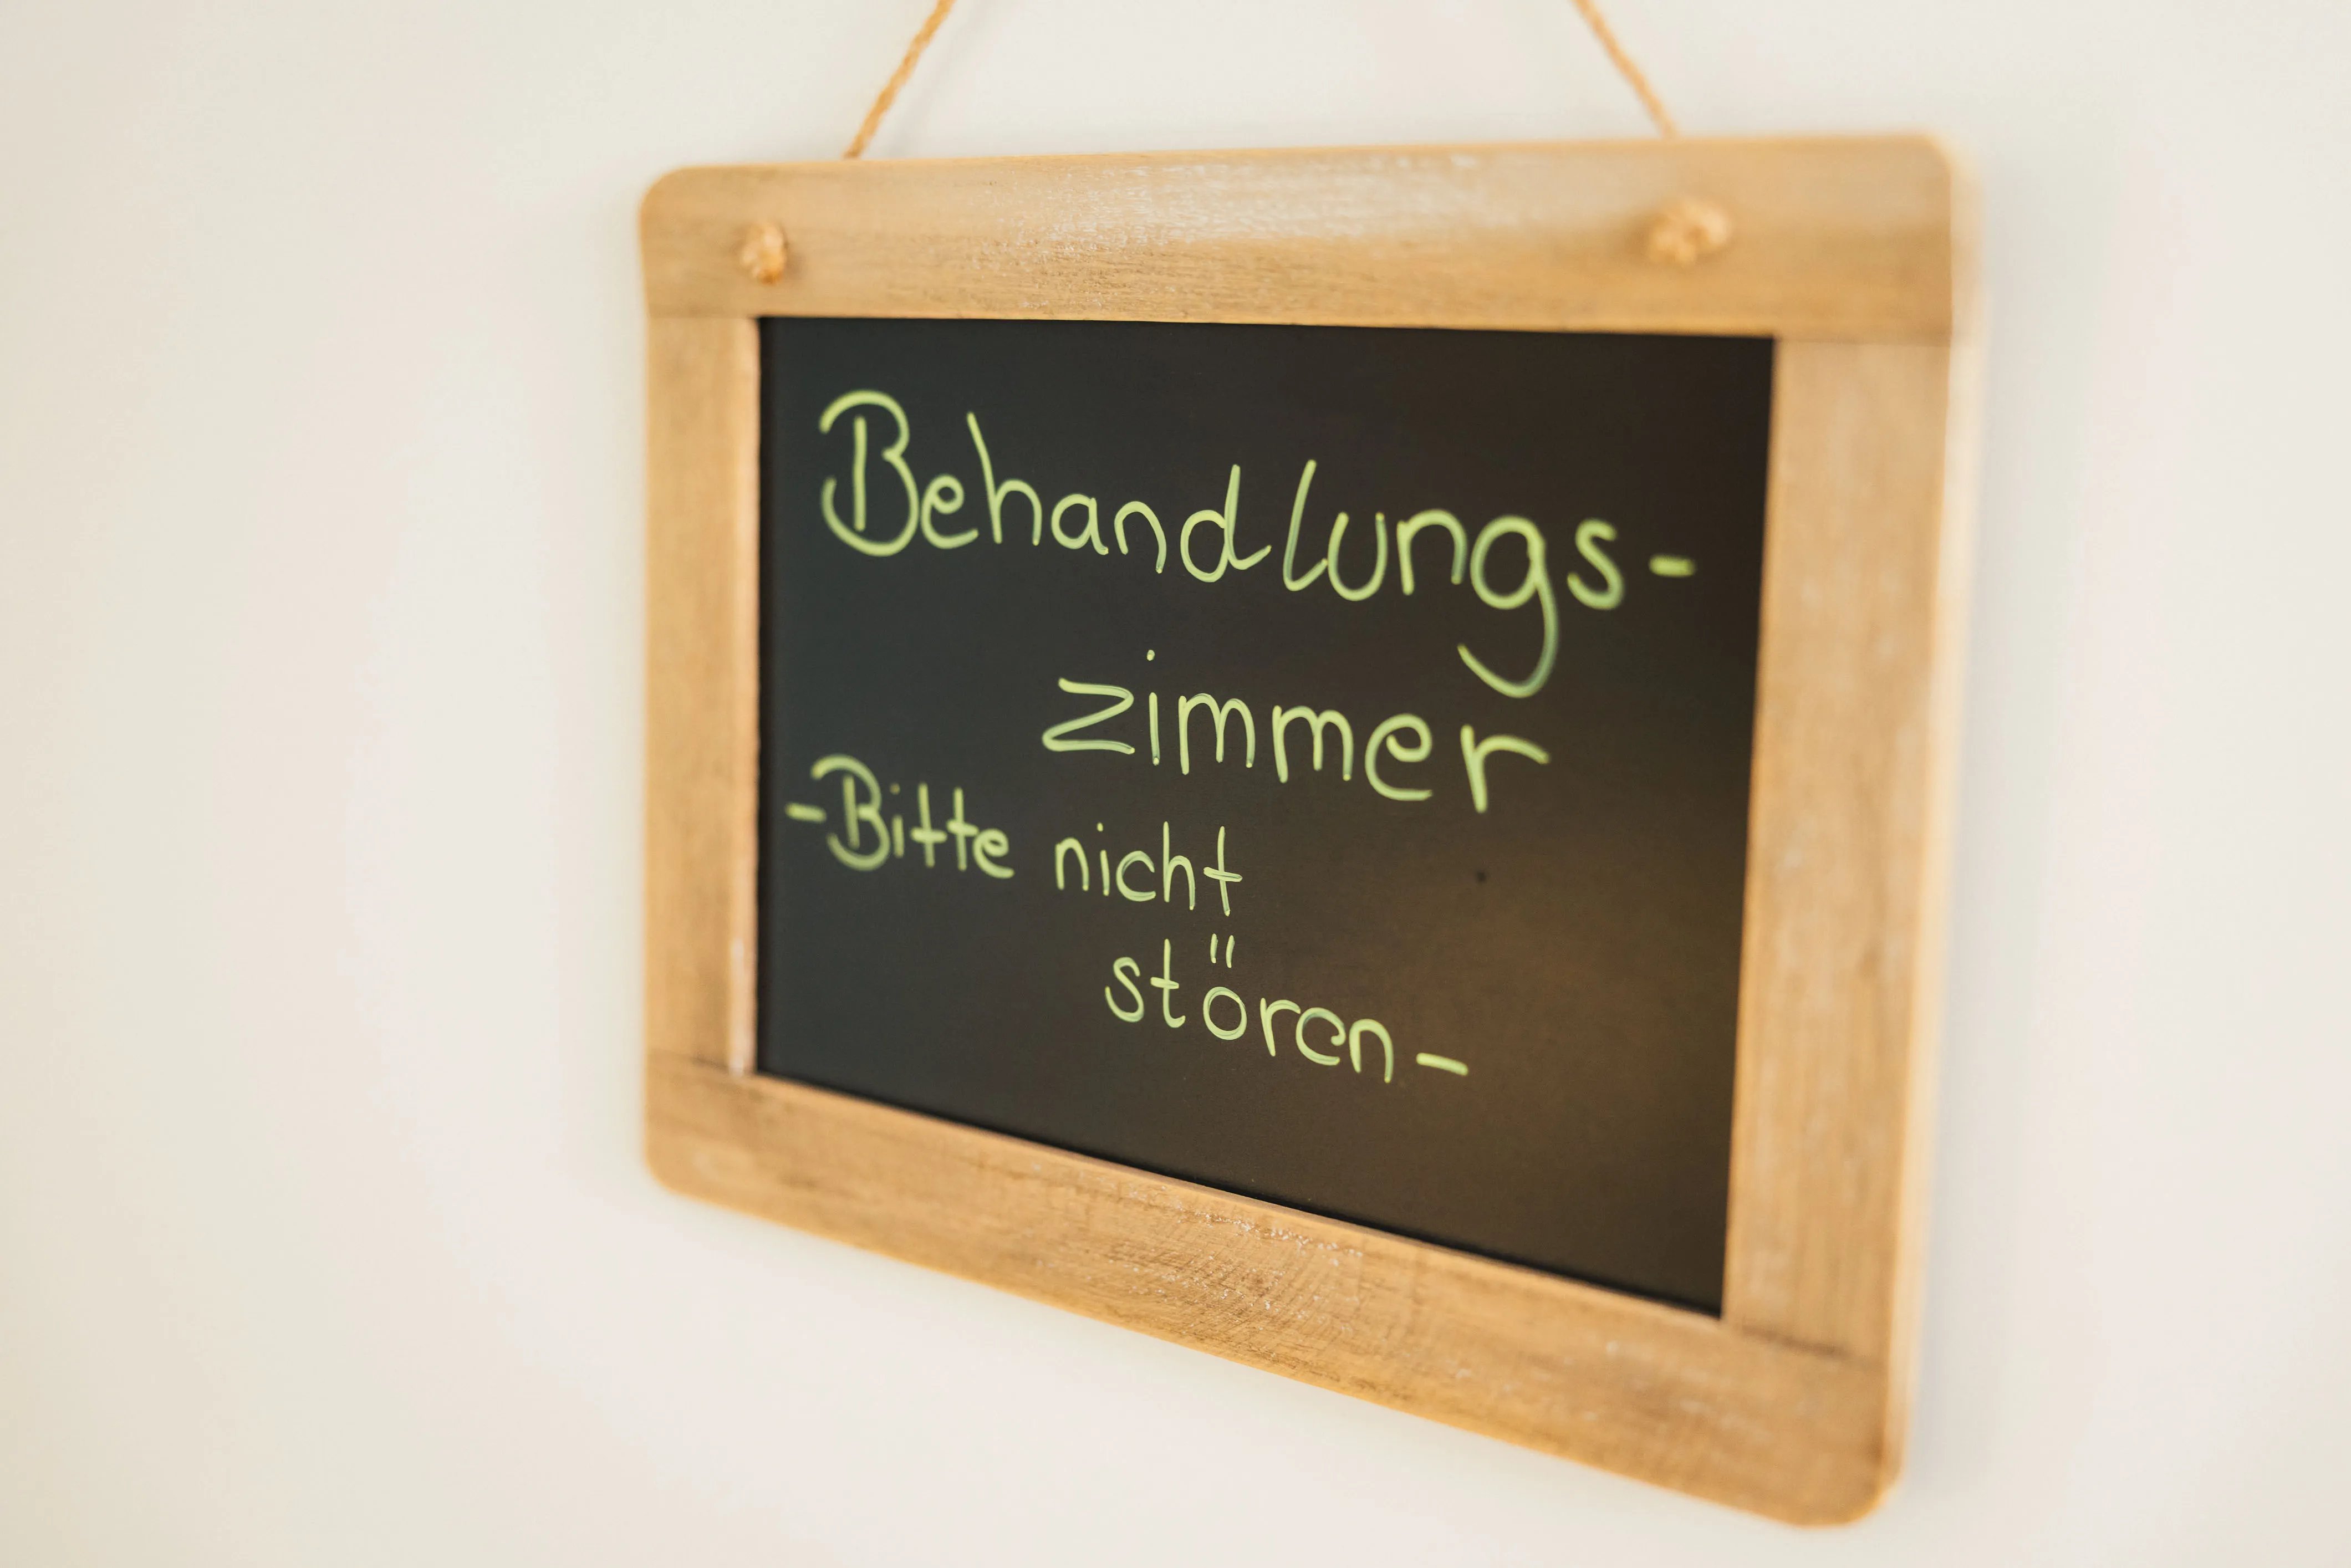 Behandlungs-
zimmer
-Bitte nicht
stören-